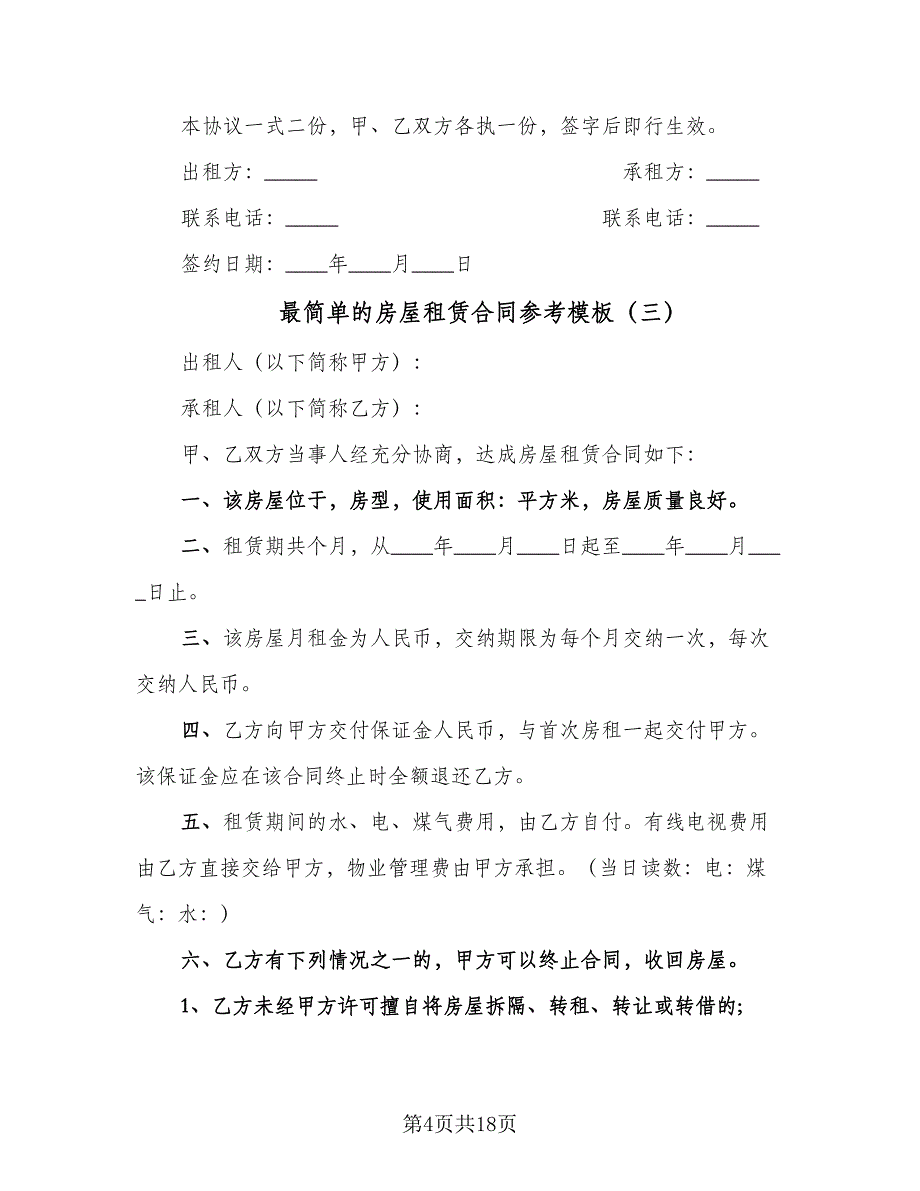 本协议一式二份，甲、乙双方各执一份，签字后即行生效。
出租方：_____ 承租方：_____
联系电话：_____ 联系电话：_____
签约日期：____年____月____日
最简单的房屋租赁合同参考模板（三）
出租人（以下简称甲方）：
承租人（以下简称乙方）：
甲、乙双方当事人经充分协商，达成房屋租赁合同如下：
一、该房屋位于，房型，使用面积：平方米，房屋质量良好。
二、租赁期共个月，从____年____月____日起至____年____月___
_日止。
三、该房屋月租金为人民币，交纳期限为每个月交纳一次，每次
交纳人民币。
四、乙方向甲方交付保证金人民币，与首次房租一起交付甲方。
该保证金应在该合同终止时全额退还乙方。
五、租赁期间的水、电、煤气费用，由乙方自付。有线电视费用
由乙方直接交给甲方，物业管理费由甲方承担。（当日读数：电：煤
气：水：）
六、乙方有下列情况之一的，甲方可以终止合同，收回房屋。
1、乙方未经甲方许可擅自将房屋拆隔、转租、转让或转借的;
第4页共18页